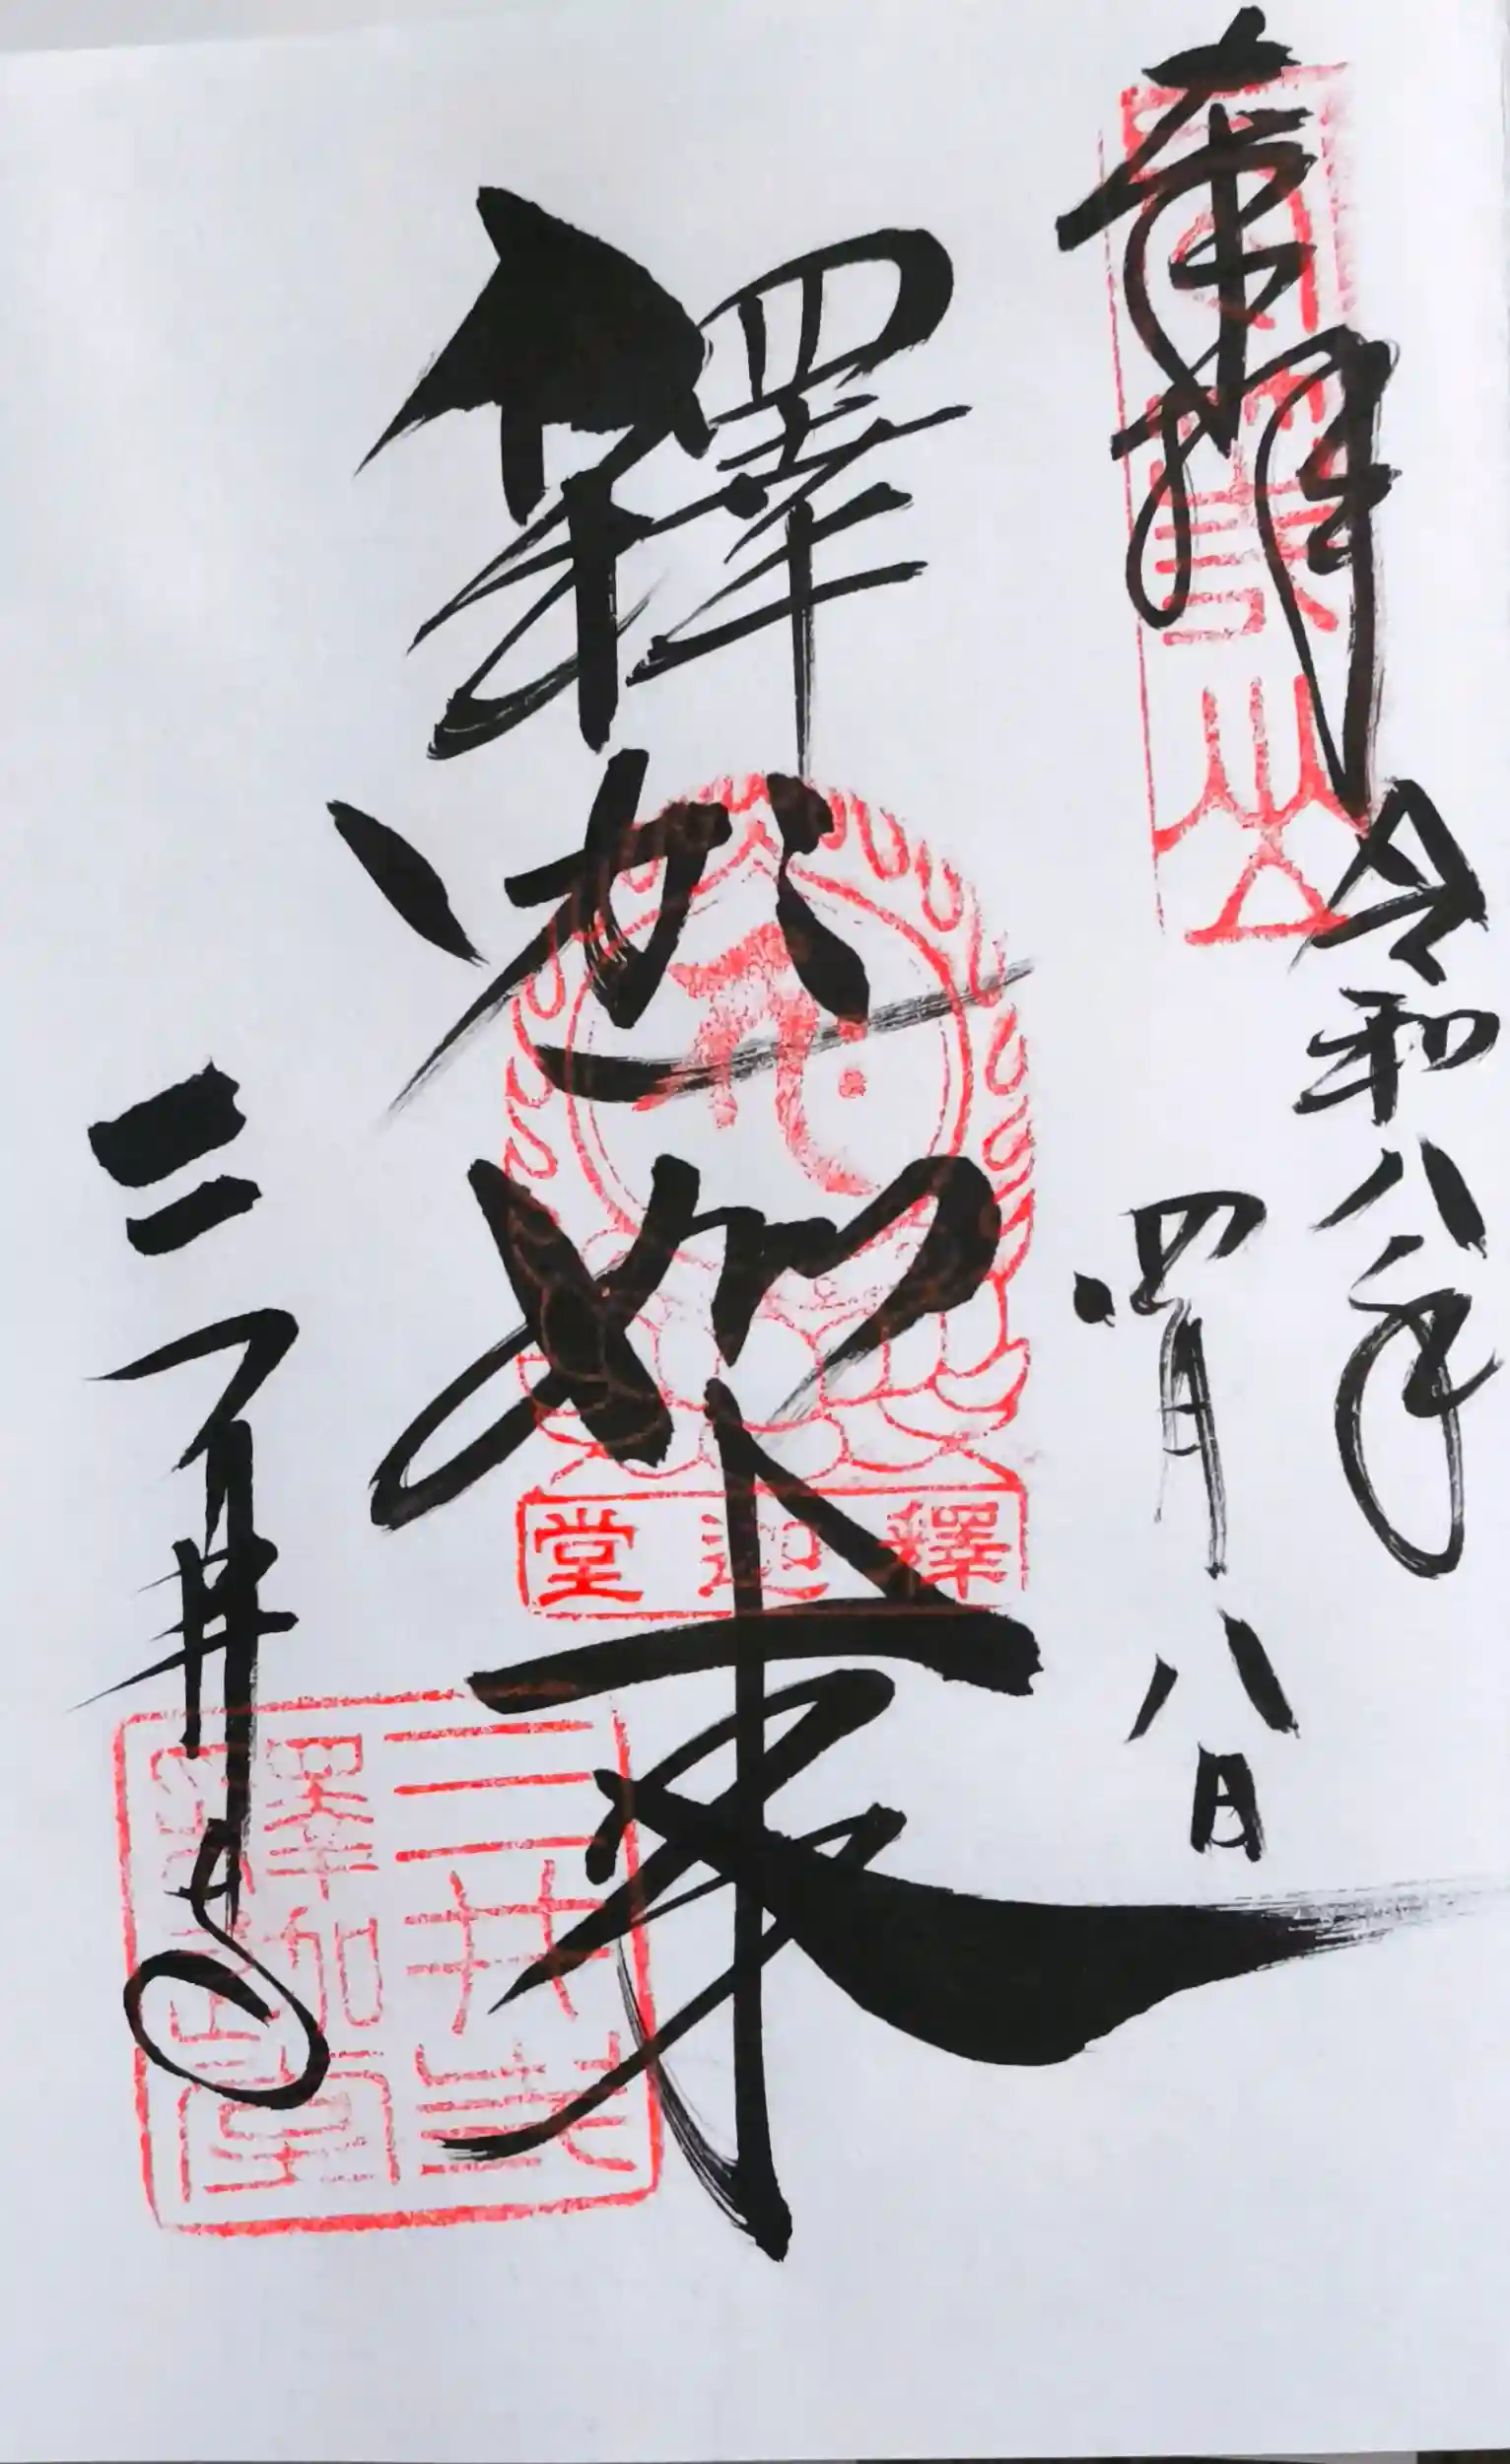 奉拝
令和八年
四月八日
釋迦如来
三井寺
釋迦堂
三井寺
釋迦堂